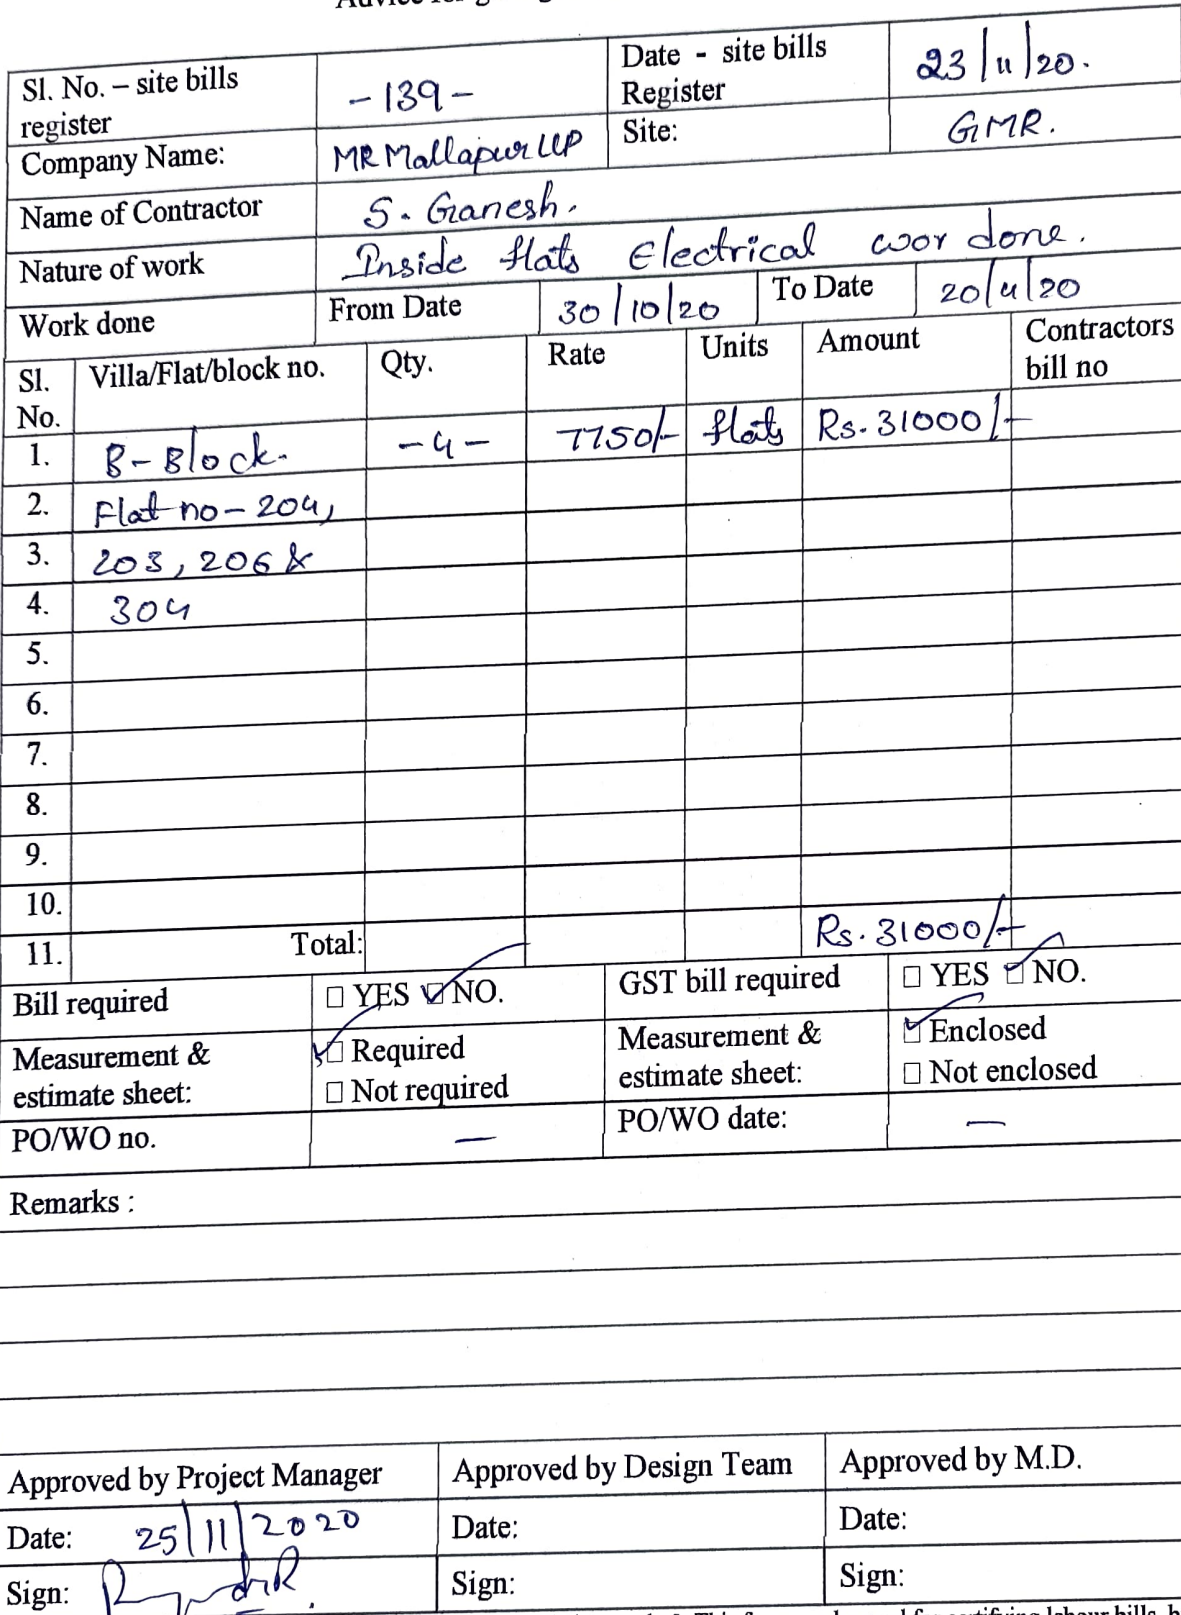 Sl. No. – site bills register -139- Date - site bills Register 23/11/20.
Company Name: MR Mallapur LLP Site: GMR.
Name of Contractor S. Ganesh.
Nature of work Inside flats Electrical wor done.
Work done From Date 30/10/20 To Date 20/11/20
Sl. No. Villa/Flat/block no. Qty. Rate Units Amount Contractors bill no
1. B-Block. -4- 7750/- flats Rs. 31000/-
2. Flat no-204,
3. 203, 206 &
4. 304
5.
6.
7.
8.
9.
10.
11. Total: Rs. 31000/-
Bill required □ YES ☑ NO. GST bill required □ YES ☑ NO.
Measurement & estimate sheet: ☑ Required □ Not required Measurement & estimate sheet: ☑ Enclosed □ Not enclosed
PO/WO no. — PO/WO date: —
Remarks :
Approved by Project Manager Approved by Design Team Approved by M.D.
Date: 25/11/2020 Date: Date:
Sign: Sign: Sign: